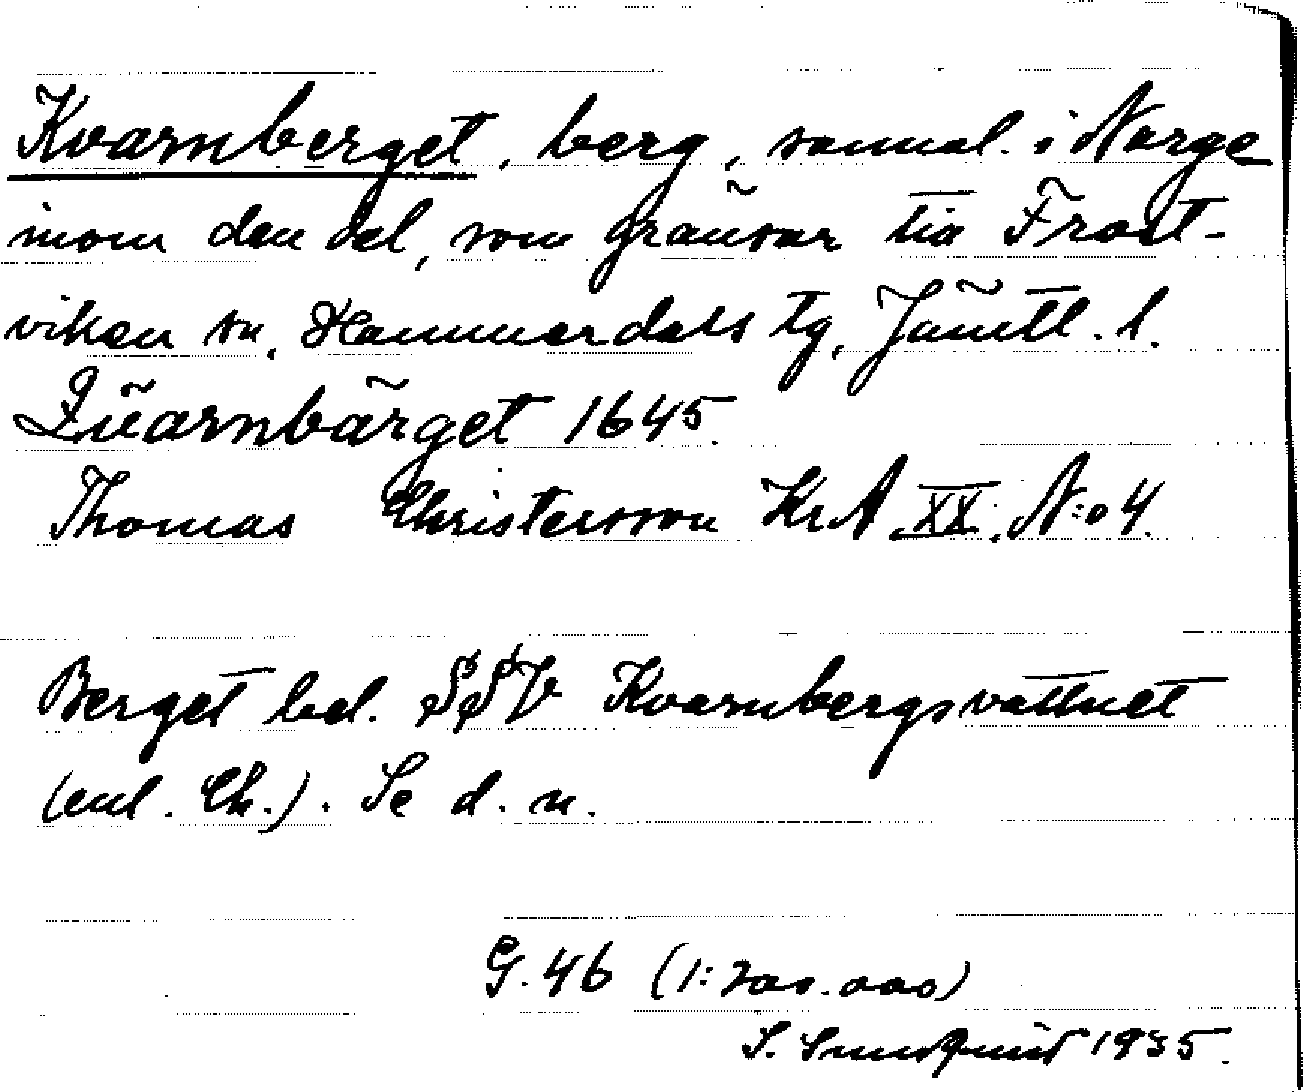 Kvarnberget, berg, sannol. i Norge
inom den del, som gränsar till Frost-
viken sn, Hammerdals tg, Jämtl. l.
Quarnbärget 1645.
Thomas Christersson KrA XX, N:o 4.
Berget bel. SSV Kvarnbergsvattnet
(enl. Ch.). Se d. n.
G. 46 (1:200.000)
S. 1935.